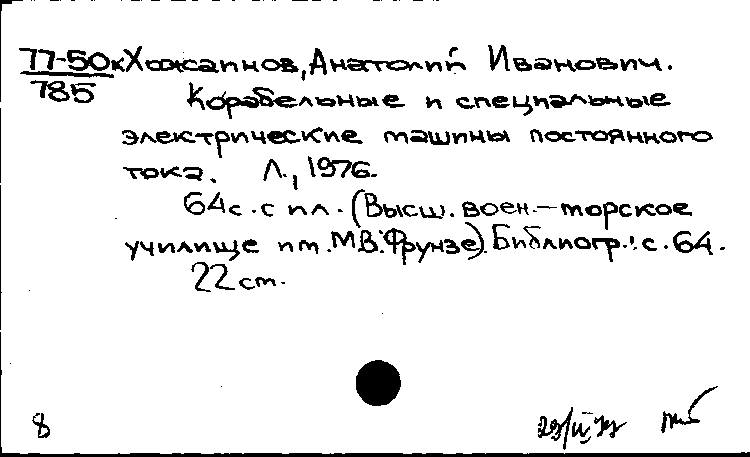 77-50к Хожаинов, Анатолий Иванович.
785
Корабельные и специальные
электрические машины постоянного
тока. Л., 1976.
64с. с ил. (Высш. воен.-морское
училище им. М.В. Фрунзе). Библиогр.: с. 64.
22 см.
8